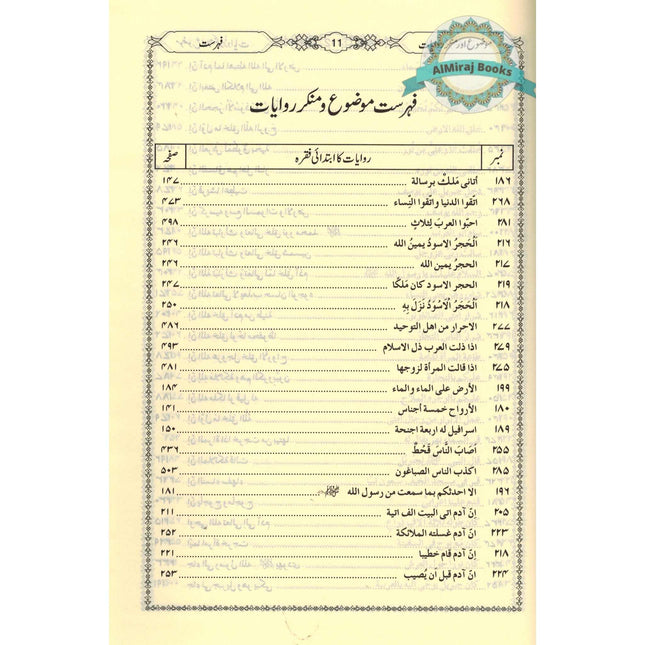 فہرست
11
AlMiraj Books
فہرست موضوع و منکر روایات
نمبر روایات کا ابتدائی فقرہ صفحہ
۱۸۶ أتانى مَلكٌ برسالة ۱۴۷
۲۶۸ اتقوا الدنيا واتقوا النِّساء ۴۷۳
۲۸۱ احبّوا العربَ لِثلاثٍ ۴۹۸
۲۱۶ اَلْحَجرُ الاسودُ يمينُ الله ۲۴۶
۲۱۷ الحجرُ يمين الله ۲۴۶
۲۱۹ الحجر الاسود كان مَلكًا ۲۴۷
۲۱۸ اَلْحَجَرُ الْاَسْوَدُ نَزَلَ بِهِ ۲۵۰
۲۷۷ الاحرار من اهل التوحيد ۴۸۶
۲۷۹ اذا ذلت العرب ذل الاسلام ۴۹۳
۲۷۵ اذا قالت المرأة لزوجها ۴۸۱
۱۹۹ الأرض على الماء والماء ۱۸۴
۱۸۰ الأرواح خمسة أجناس ۱۴۱
۱۸۹ اسرافيل له اربعة اجنحة ۱۵۰
۲۵۵ اَصَابَ النَّاسَ قَحْطٌ ۴۳۶
۲۸۵ اكذب الناس الصباغون ۵۰۳
۱۹۶ الا احدثكم بما سمعت من رسول الله ﷺ ۱۸۱
۲۰۵ إنّ آدم اتى البيت الف اتية ۲۱۱
۲۲۳ انّ آدم غسلته الملائكة ۲۵۲
۲۱۸ انّ آدم قام خطيبا ۲۲۱
۲۲۴ انّ آدم قبل أن يُصيب ۲۵۳